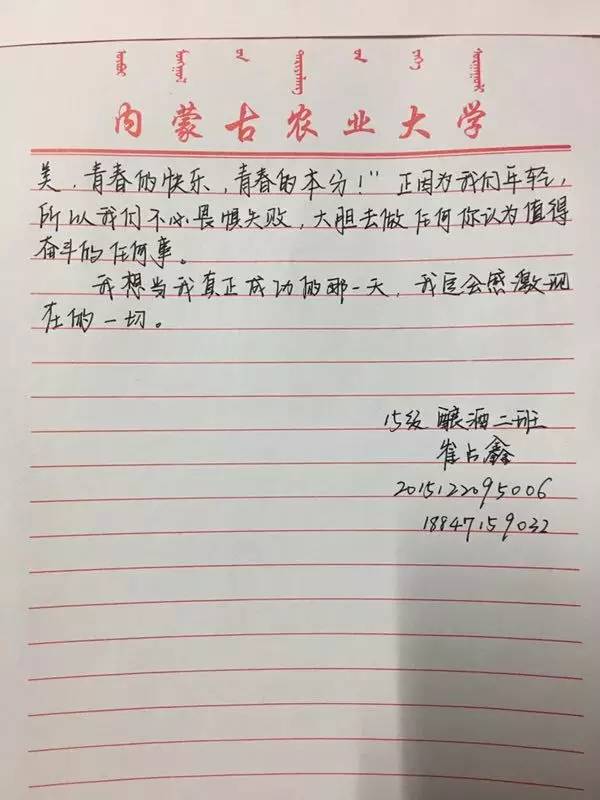 内蒙古农业大学
美，青春的快乐，青春的本分！”正因为我们年轻，
所以我们不必畏惧失败，大胆去做任何你认为值得
奋斗的任何事。
我想当我真正成功的那一天，我定会感激现
在的一切。
15级 酿酒二班
崔占鑫
2015122095006
18847159032